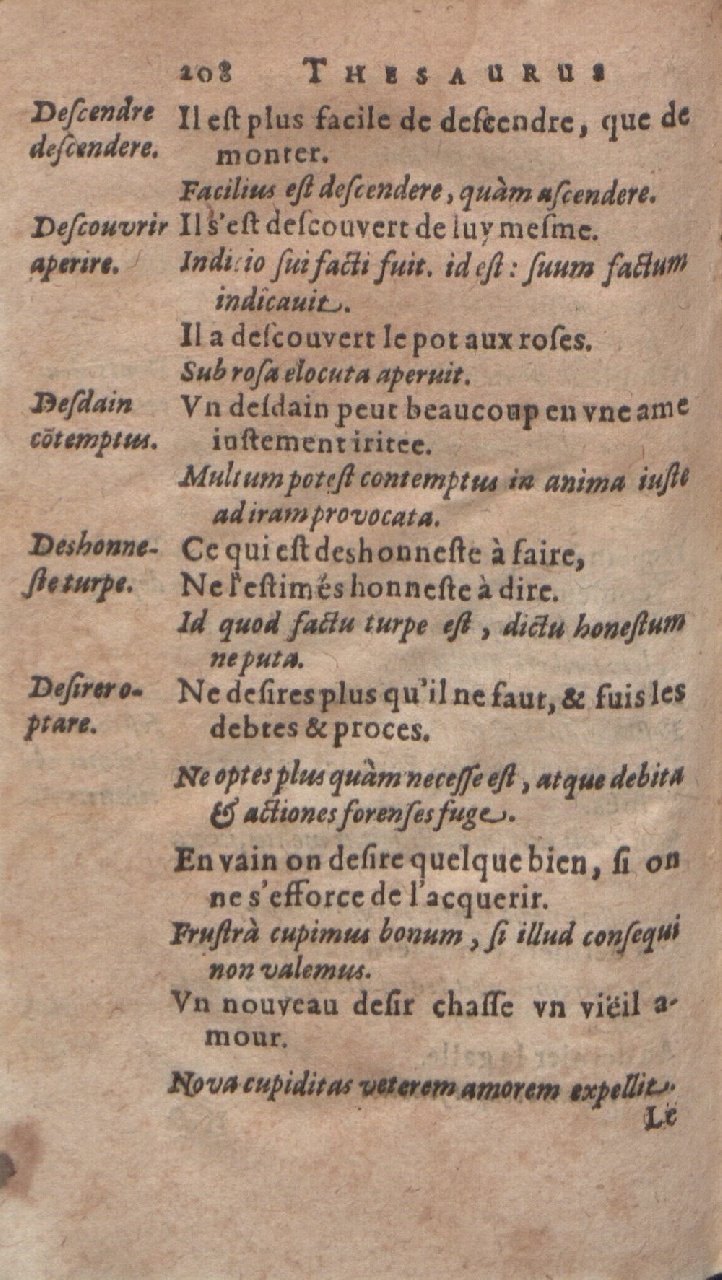 208 THESAURUS
Deſcendre
deſcendere.
Il eſt plus facile de deſcendre, que de
monter.
Facilius eſt deſcendere, quàm aſcendere.
Deſcouvrir
aperire.
Il s'eſt deſcouvert de luy meſme.
Indicio ſui facti fuit. id eſt: ſuum factum
indicauit.
Il a deſcouvert le pot aux roſes.
Sub roſa elocuta aperuit.
Deſdain
cōtemptus.
Vn deſdain peut beaucoup en vne ame
iuſtement iritee.
Multum poteſt contemptus in anima iuſte
ad iram provocata.
Deshonne-
ſte turpe.
Ce qui eſt deshonneſte à faire,
Ne l'eſtimés honneſte à dire.
Id quod factu turpe eſt, dictu honeſtum
ne puta.
Deſirer o-
ptare.
Ne deſires plus qu'il ne faut, & fuis les
debtes & proces.
Ne optes plus quàm neceſſe eſt, atque debita
& actiones forenſes fuge.
En vain on deſire quelque bien, ſi on
ne s'efforce de l'acquerir.
Fruſtrà cupimus bonum, ſi illud conſequi
non valemus.
Vn nouveau deſir chaſſe vn vieil a-
mour.
Nova cupiditas veterem amorem expellit.
Le